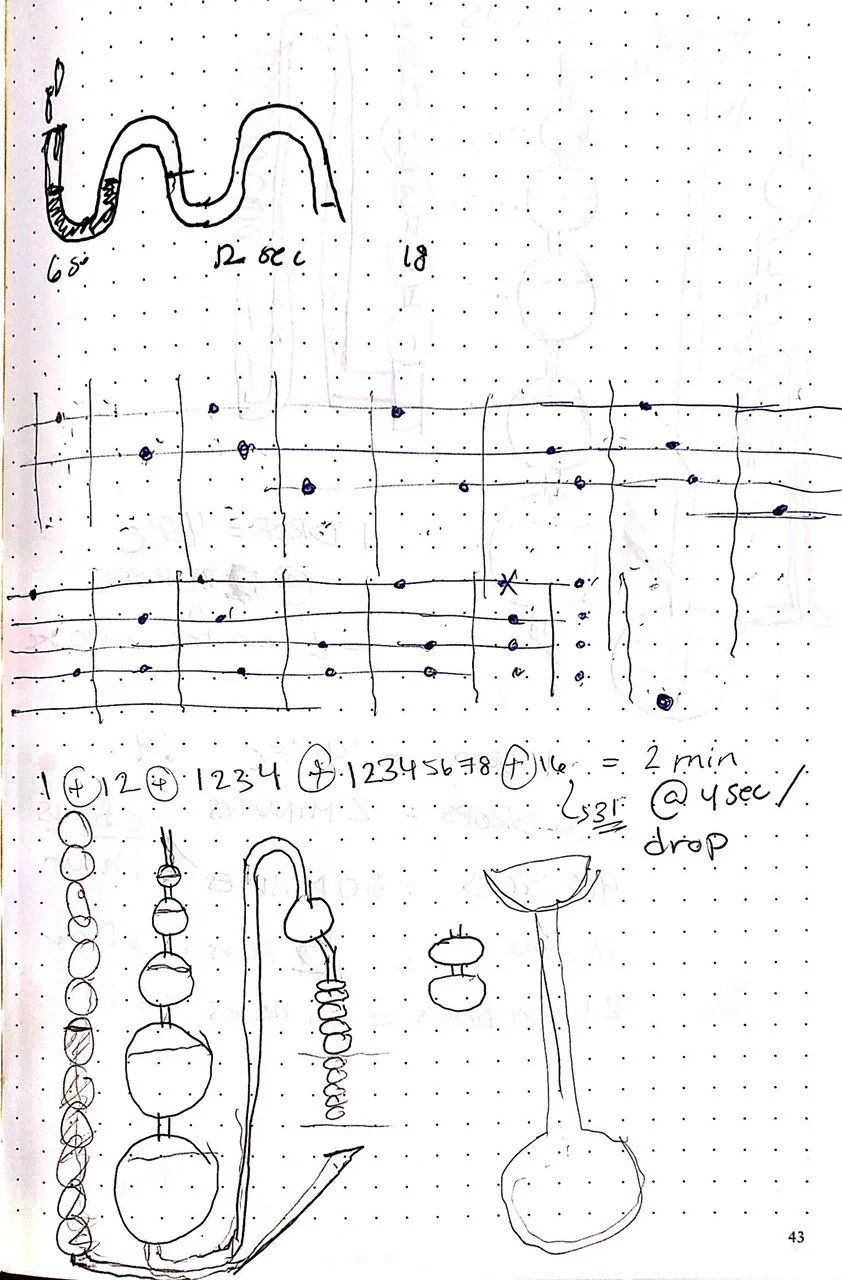 12 sec
18
1 + 12 + 1234 + 12345678 + 16 = 2 min
31
@ 4 sec/
drop
43